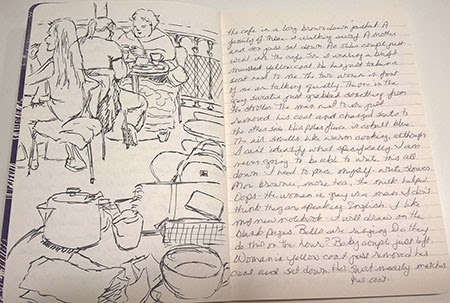 the cafe in a long brown down jacket. A
family of three is walking away. A mother
and son just sat down. An older couple just
went into the cafe. She is wearing a bright
mustard yellow coat. He has just taken a
seat next to me. The two women in front
of me are talking quietly. The one in the
gray sweater just grabbed something from
the stroller. The man next to me just
removed his coat and changed seats to
the other side. His fleece is cobalt blue.
The air smells like warm cooking, although
I can't identify what specifically. I am
never going to be able to write this all
down. I need to pace myself. write slower.
Mor brownie, more tea, the milk helped.
Oops the woman in gray is a man. I don't
think they are speaking English. I like
my new notebook. I will draw on the
blank pages. Bells are ringing. Do they
do this on the hour? Baby couple just left.
Woman in yellow coat just removed her
coat and sat down. Her skirt nearly matches
her coat.